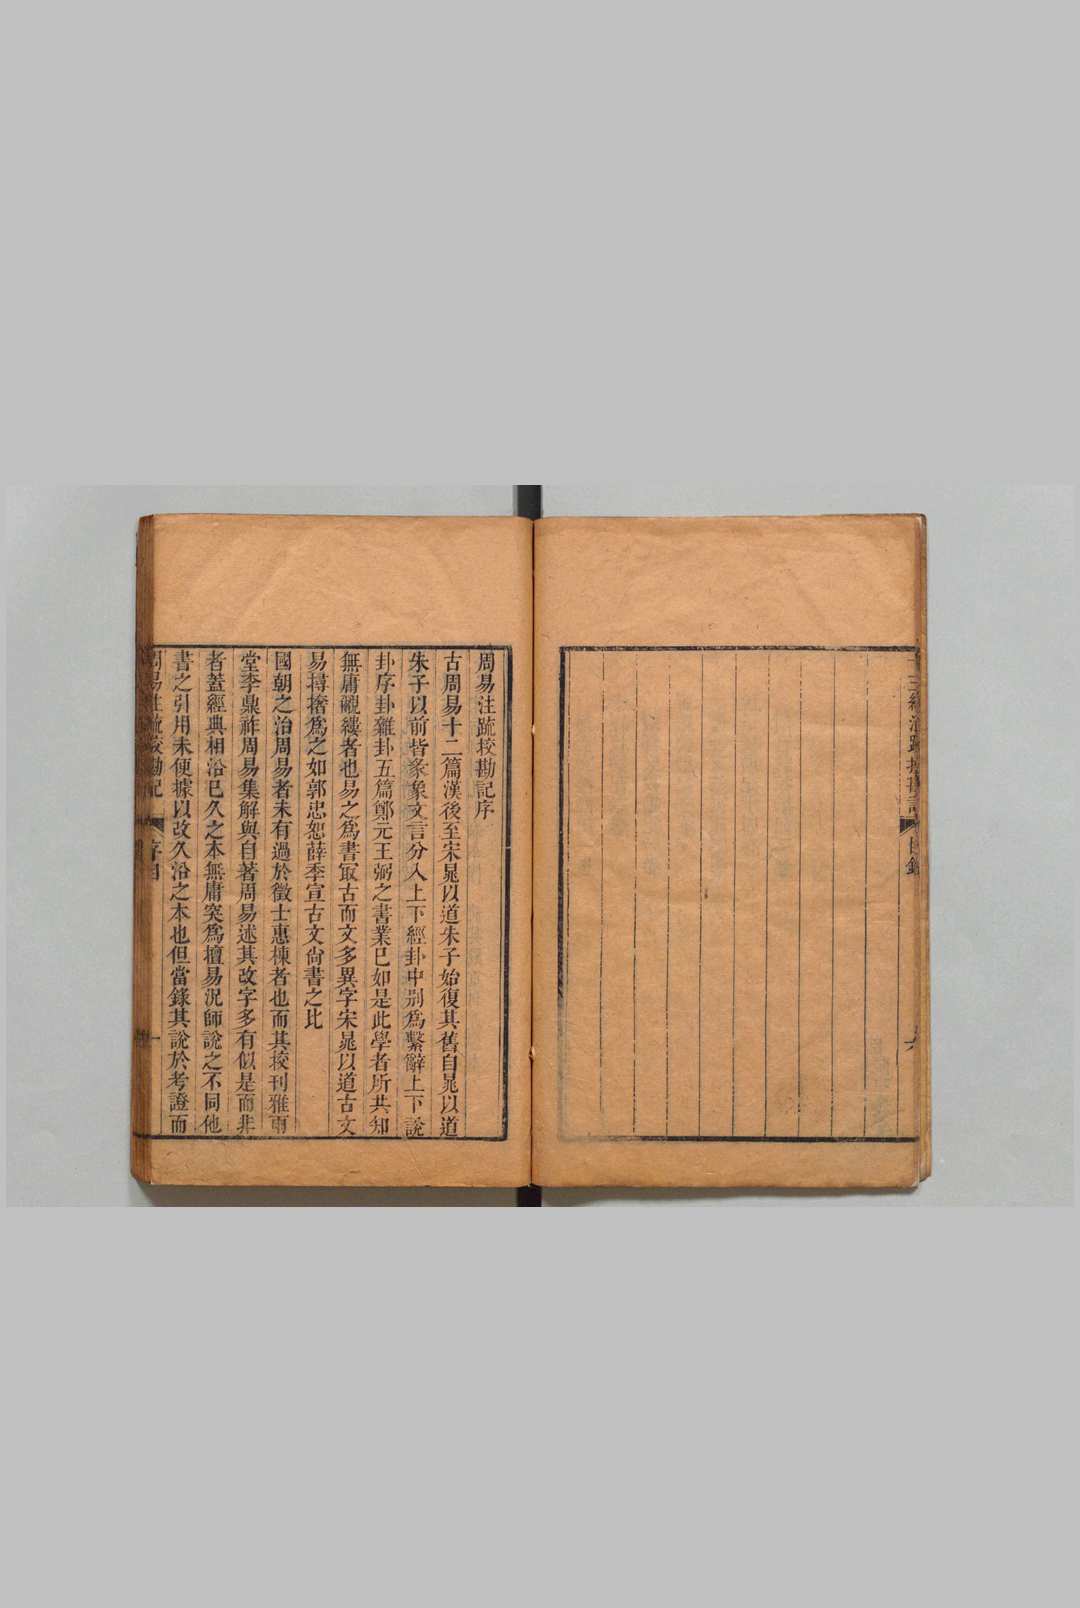 周易注疏挍勘記序
古周易十二篇漢後至宋晁以道朱子始復其舊自晁以道
朱子以前皆彖象文言分入上下經卦中別爲繫辭上下說
卦序卦雜卦五篇鄭元王弼之書業已如是此學者所共知
無庸覼縷者也易之爲書㝡古而文多異字宋晁以道古文
易撏撦爲之如郭忠恕薛季宣古文尙書之比
國朝之治周易者未有過於徵士惠棟者也而其挍刊雅雨
堂李鼎祚周易集解與自著周易述其改字多有似是而非
者蓋經典相沿已久之本無庸突爲擅易況師說之不同他
書之引用未便據以改久沿之本也但當錄其說於考證而
周易注疏挍勘記
序目
一
目錄
六